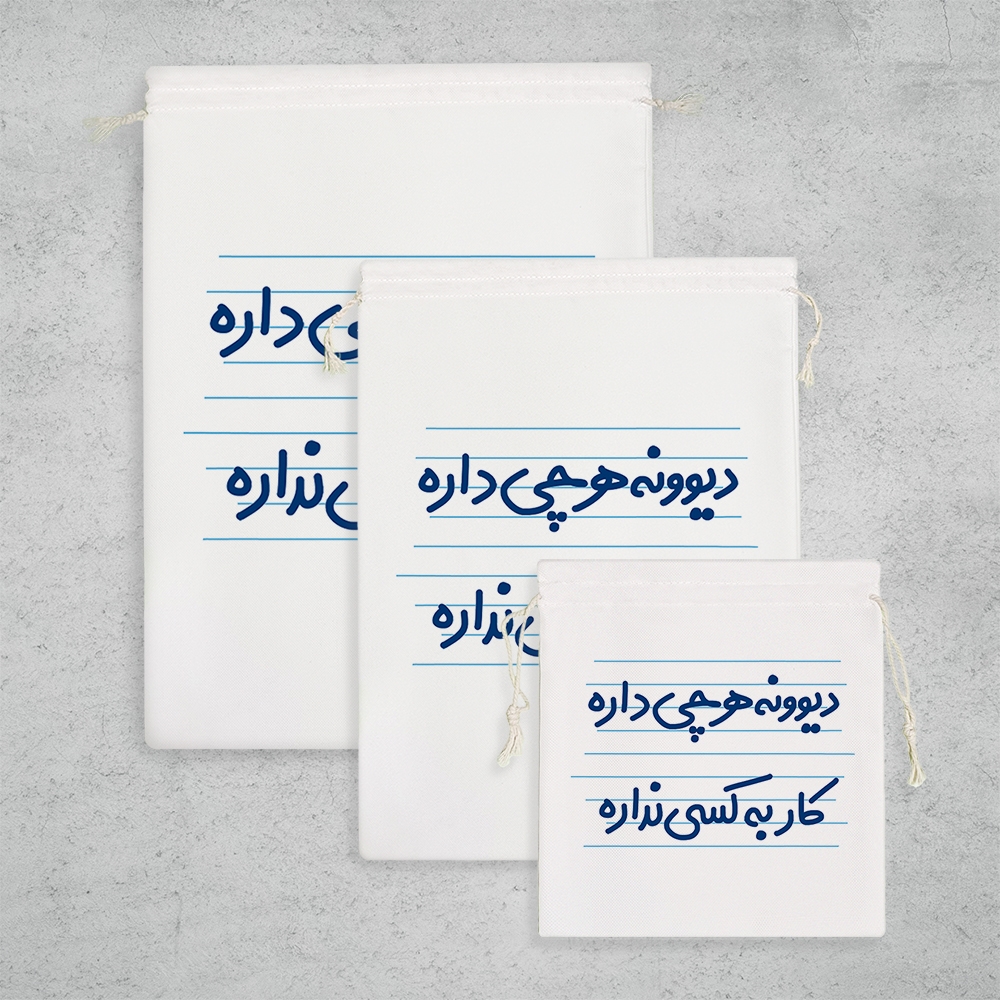 ی داره
ی نداره
دیوونه هرچی داره
ی نداره
دیوونه هرچی داره
کار به کسی نداره